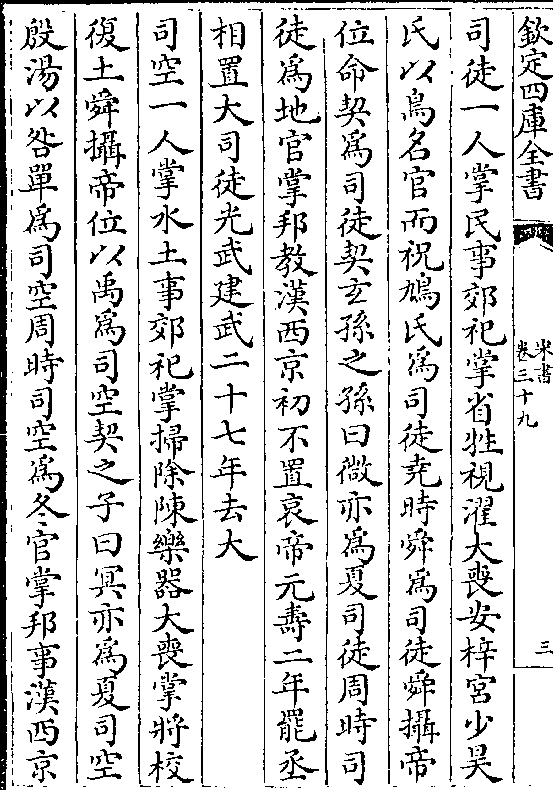 欽定四庫全書
宋書
卷三十九
三
司徒一人掌民事郊祀掌省牲視濯大喪安梓宮少昊
氏以鳥名官而祝鳩氏為司徒堯時舜為司徒舜攝帝
位命契為司徒契玄孫之孫曰微亦為夏司徒周時司
徒為地官掌邦教漢西京初不置哀帝元壽二年罷丞
相置大司徒光武建武二十七年去大
司空一人掌水土事郊祀掌掃除陳樂器大喪掌將校
復土舜攝帝位以禹為司空契之子曰冥亦為夏司空
殷湯以咎單為司空周時司空為冬官掌邦事漢西京